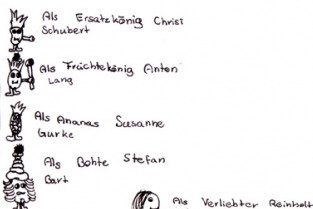 Als Ersatzkönig Christ
Schubert
Als Früchtekönig Anton
Lang
Als Ananas Susanne
Gurke
Als Bohte Stefan
Bart
Als Verliebter Reinholt